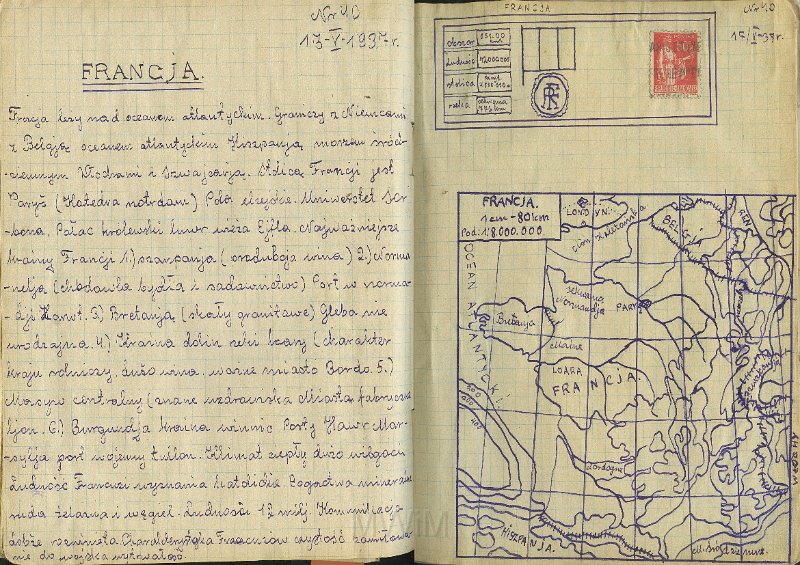 Nr 40
17-V-1937-r.
FRANCJA.
Frcja leży nad oceanem atlantyckim. Graniczy z Niemcami
z Belgją oceanem atlantyckim Hiszpanją morzem śród-
ziemnym Włochami i Szwajcarją. Stolicą Francji jest
Paryż (Katedra notrdam) Pola elizejskie. Uniwersytet Sor-
bona, Pałac królewski luwr wieża Ejfla. Najważniejsze
krainy Francji 1.) szampanja (produkcja wina) 2.) Norman-
nedja (chodowla bydła i sadownictwo) Port w norma-
dji Hawr. 3.) Bretanja (skały granitowe) Gleba nie
urodzajna. 4.) Kraina dolin reki loary (charakter
kraju rolniczy, dużo wina, ważne miasto Bordo. 5.)
Masyw centralny (znane uzdrowiska Miasta fabryczne
ljon. 6.) Burgundja kraina winnic Porty Hawr Mar-
sylja port wojenny tullon. Klimat ciepły dużo wilgoci
Ludność Francuzi wyznania katolickie. Bogactwa mineralne
ruda żelazna i węgiel. Ludności 12 milj. Komunikacja
dobrze rozwinięta Charakterystyka Francuzów czystość zamiłowa-
nie do wojska wytrwałość.
MWiM
FRANCJA
Nr 40
17/V-37r.
obszar 551.00
ludność 42000000
stolica
rzeka
RF
FRANCJA.
1 cm - 80 km
Pod. 1:8.000.000.
LONDYN.
BELGJA
REN
OCEAN ATLANTYCKI
Sekwana
Normandja
PARYŻ
Bretanja
Maine
LOARA
FRANCJA.
Dordogne
HISZPANJA.
M. Śródziemne.